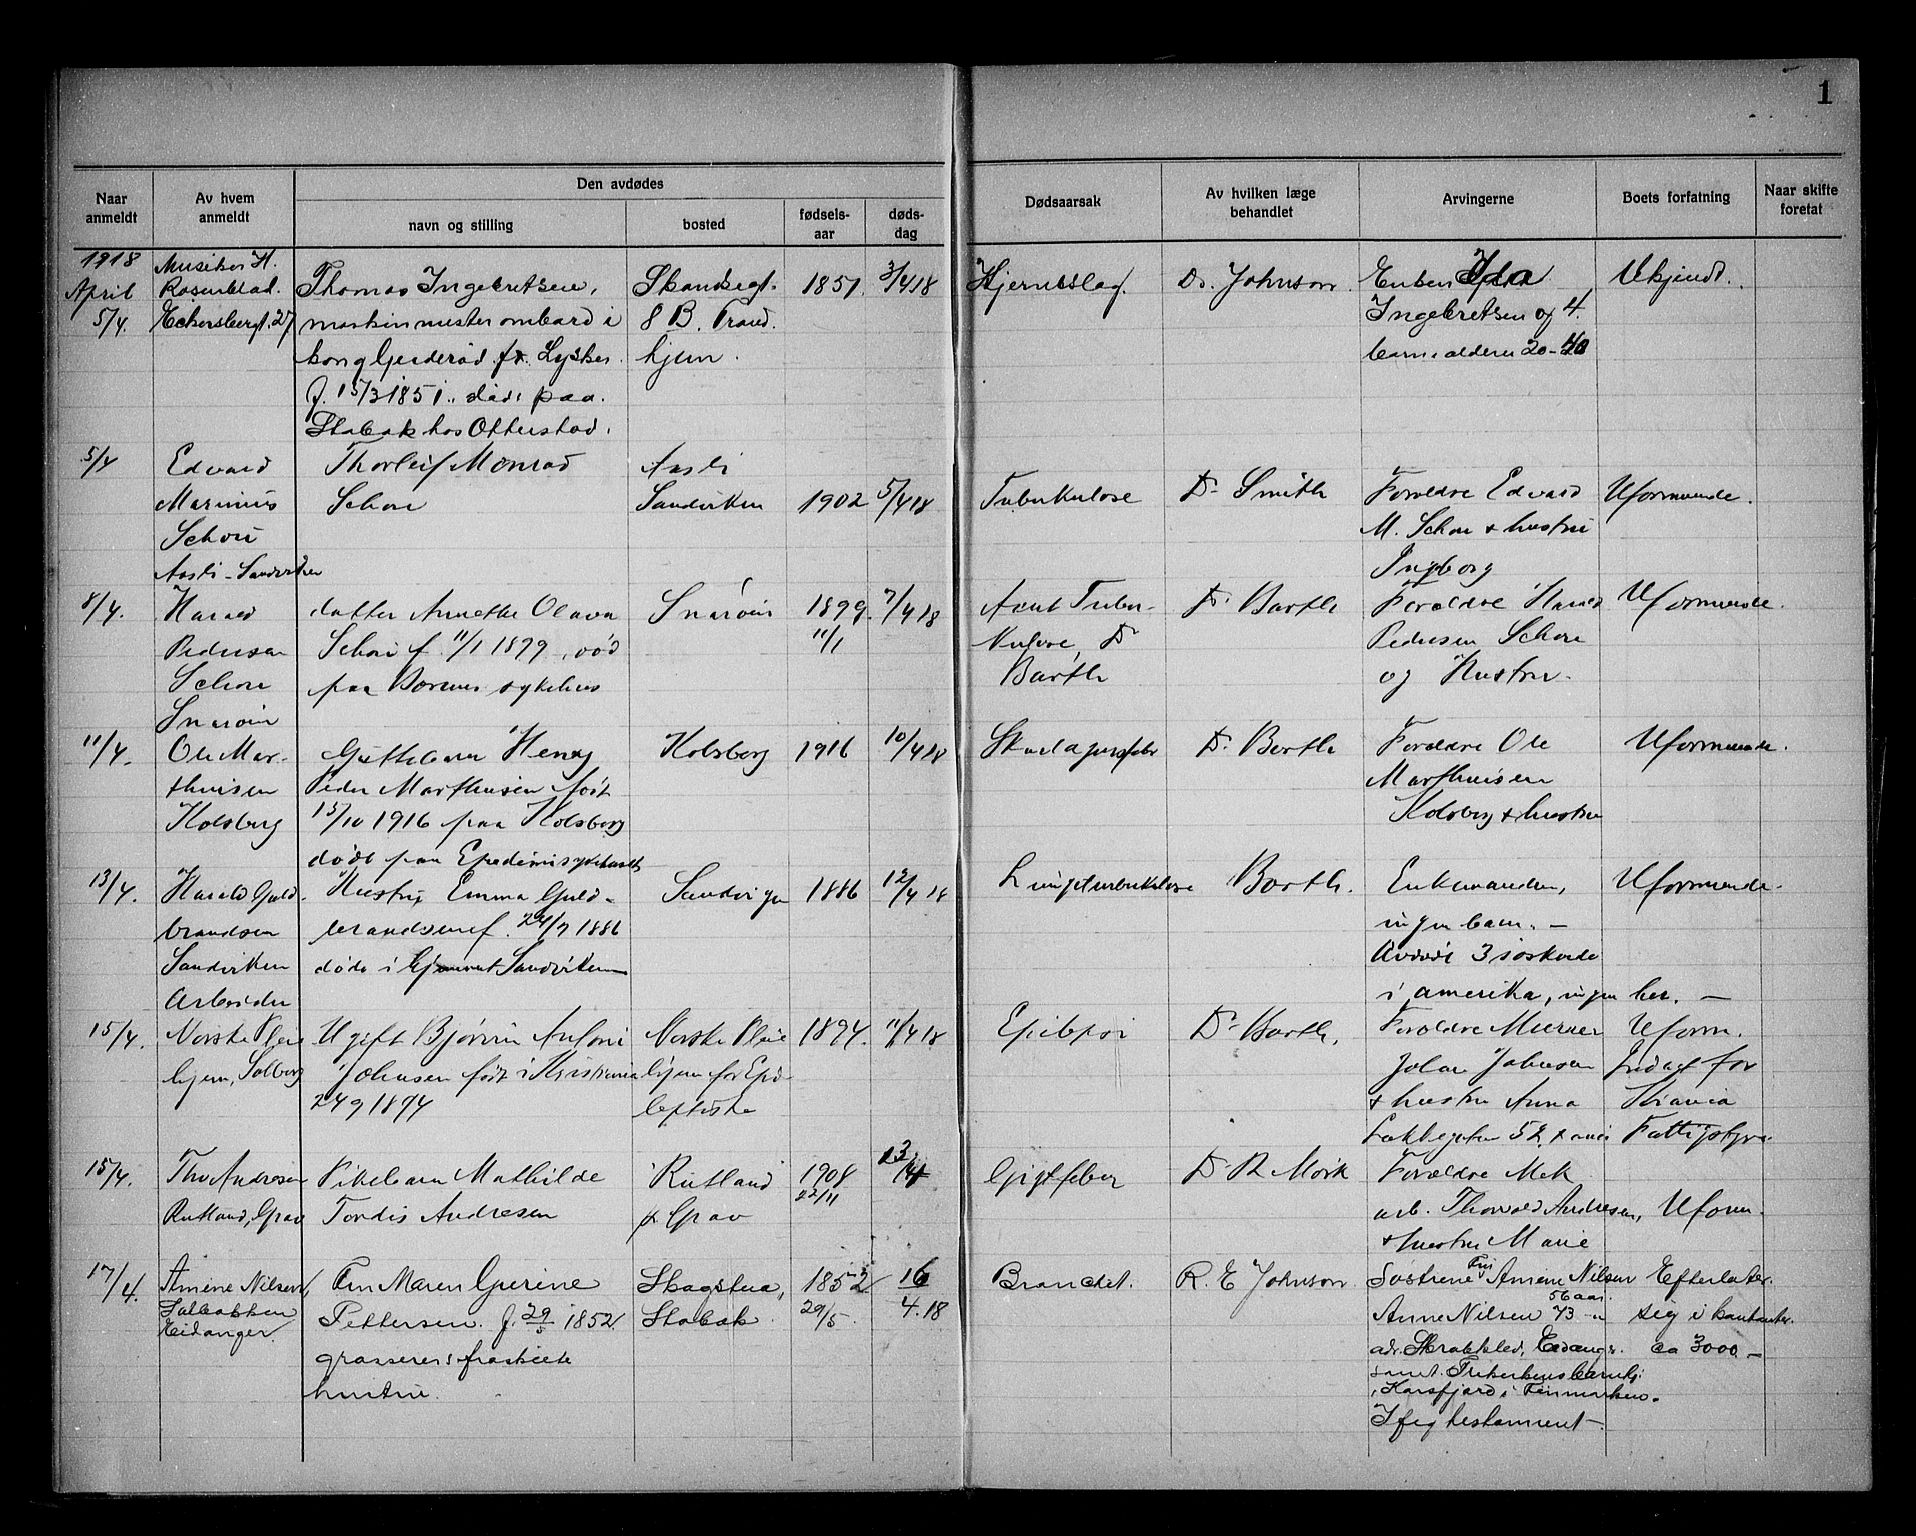 1
Naar anmeldt
Av hvem anmeldt
Den avdødes
navn og stilling
bosted
fødselsaar
dødsdag
Dødsaarsak
Av hvilken læge behandlet
Arvingerne
Boets forfatning
Naar skifte foretat
1918
April
5/4.
Musiker H.
Rosenblad.
Eckersbergt. 27
Thomas Ingebretsen,
maskinmester ombord i
f. 15/3 1851. død paa
Stabæk hos Otterstad.
8 B. Trond
hjem.
1851.
3/4 18
Hjerneslag.
Dr. Johnson.
Enken
Ingebretsen og 4
barn i alderen 20-40
Ukjendt.
5/4
Edvard
Marinius
Schou
Aasli - Sandviken
Thorleif Monrad
Schou
Aasli
Sandviken
1902
5/4 18
Tuberkulose
Dr Smith
Forældre Edvard
M. Schou + hustru
Ingborg
Uformuende.
8/4.
Harald
Pedersen
Schou
Snarøen
datter Annethe Olava
Schou f. 11/1 1899, død
paa Bærums sykehus
Snarøen
1899.
11/1
7/4 18
Acut Tuber-
kulose, Dr
Barth
Dr. Barth
Forældre Harald
Pedersen Schou
og Hustru.
Uformuende.
11/4.
Ole Mar-
thinsen
Kolsberg
Guttebarn Henry
Peder Marthinsen født
15/10 1916 paa Kolsberg
døde paa Epedimisykehuset
Kolsberg
1916
10/4 18
Dr. Barth
Forældre Ole
Marthinsen
Kolsberg + hustru
Uformuende.
13/4.
Harald Guld-
brandsen
Sandviken
Arbeider
Hustru Emma Guld-
brandsen f. 24/7 1886
døde i hjemmet Sandviken
Sandvigen
1886
12/4 18
Lungetuberkulose
Barth.
Enkemanden,
ingen barn. -
Avdøde 3 søskende
i amerika, ingen her. -
Uformuende.
15/4.
Norske Pleie
hjem, Solberg
Ugift Bjørn
Johnsen født i Kristiania
24 9 1874
Norske Pleie
hjem for Epi-
leptiske
1894.
11/4 18
Epilepsi
Dr Barth.
Forældre Murer
Johan Johnsen
+ hustru Anna
Uform.
for
Kriania
15/4.
Tho Andresen
Rutland, Grav
Pikebarn Mathilde
Tordis Andresen
Rutland
p. Grav
1908
22/11
13/4
Gigtfeber
Dr R Mork
Forældre Mek
arb. Thorvald Andresen,
+ hustru Marie
Uform.
17/4.
Amine Nilsen,
Eidanger.
Fru Maren Gurine
Pettersen. f. 29/5 1852
grosserer fraskilte
hustru.
Skogstua,
Stabæk.
1852
29/5.
16
4.18
Bronchit.
R. E Johnson.
Søstrene Fru Amine Nilsen
56 aar.
Anne Nilsen 73 -"-
adr. Eidanger.
i Finmarken.
Ifølg testament.
Efterlater
seg i kontanter
ca 3000 -